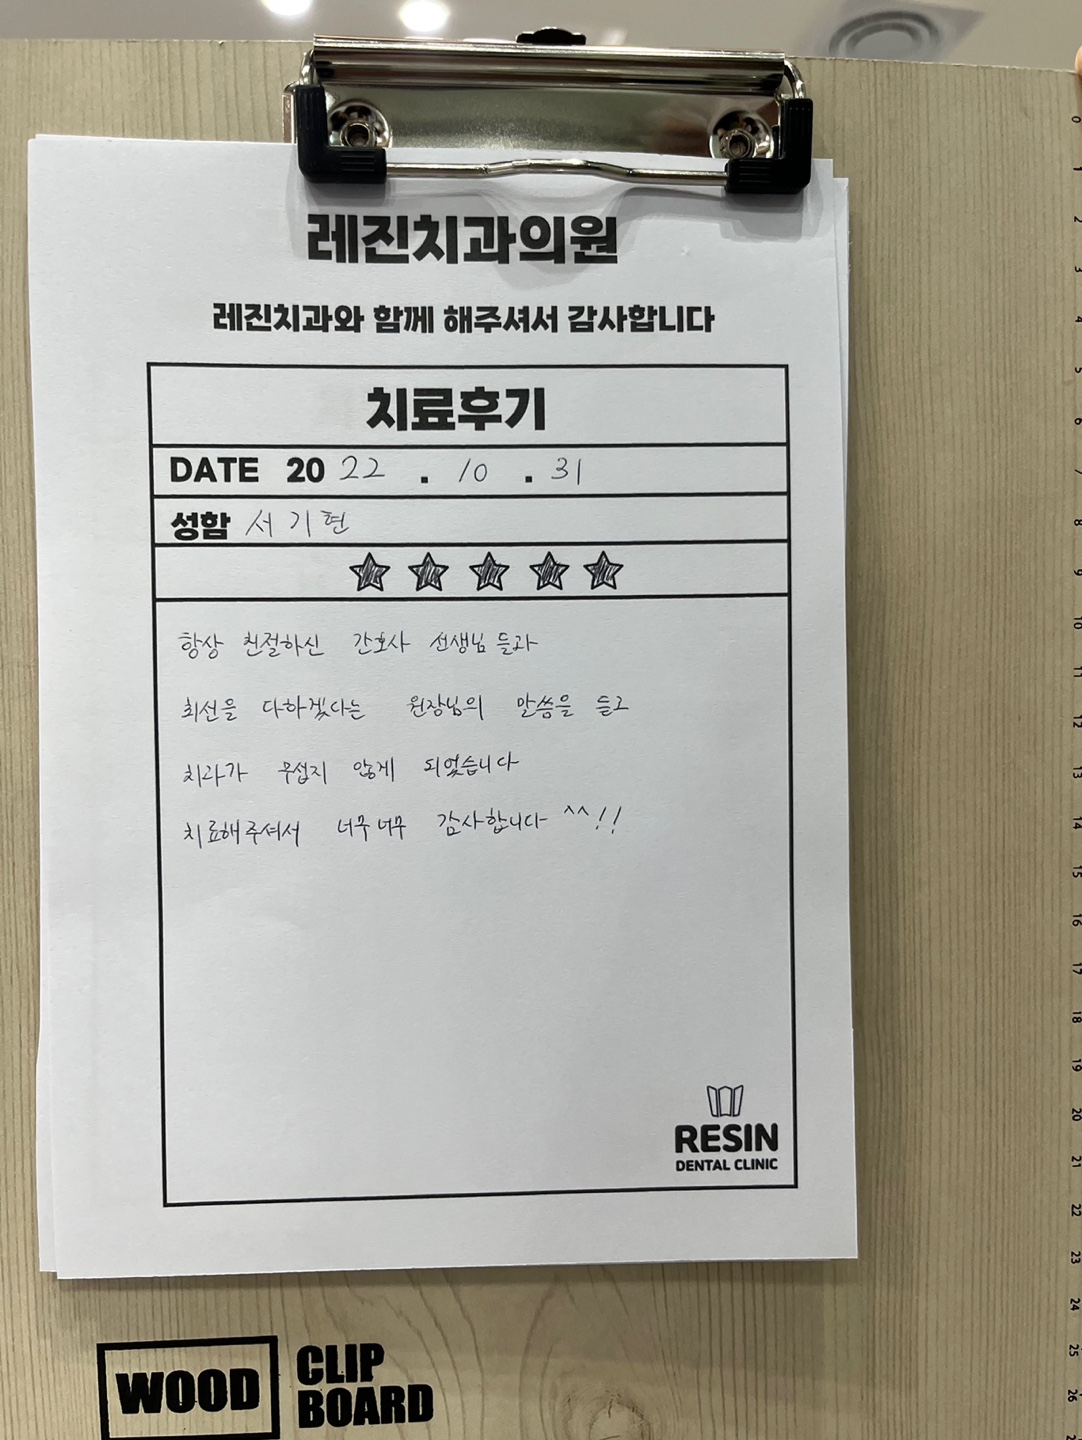 레진치과의원
레진치과와 함께 해주셔서 감사합니다
치료후기
DATE 2022 . 10 . 31
성함 서기현
항상 친절하신 간호사 선생님들과
최선을 다하겠다는 원장님의 말씀을 듣고
치과가 무섭지 않게 되었습니다
치료해주셔서 너무너무 감사합니다 ^^!!
RESIN
DENTAL CLINIC
WOOD CLIP
BOARD
0
1
2
3
4
5
6
7
8
9
10
11
12
13
14
15
16
17
18
19
20
21
22
23
24
25
26